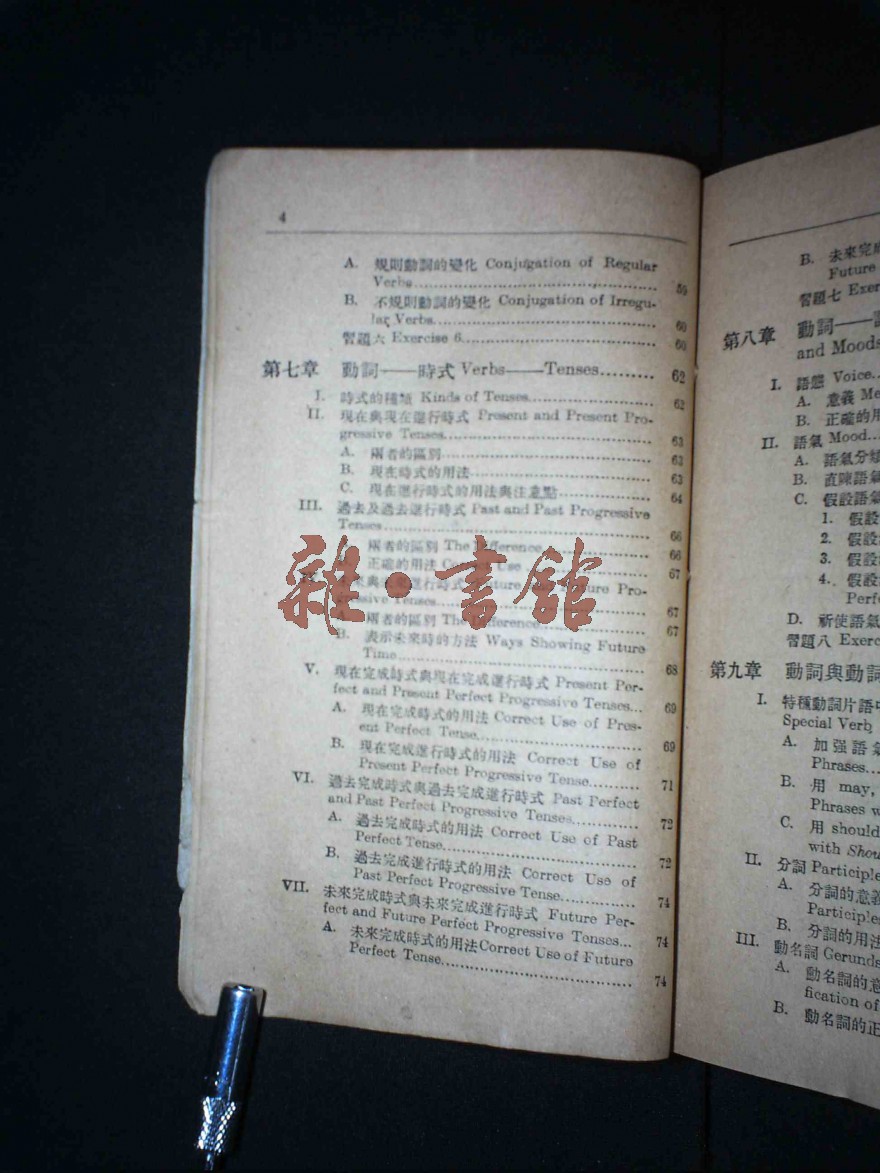 4
A. 規則動詞的變化 Conjugation of Regular
Verbs 59
B. 不規則動詞的變化 Conjugation of Irregu-
lar Verbs 60
習題六 Exercise 6 60
第七章 動詞——時式 Verbs——Tenses 62
I. 時式的種類 Kinds of Tenses 62
II. 現在與現在進行時式 Present and Present Pro-
gressive Tenses 63
A. 兩者的區別 63
B. 現在時式的用法 63
C. 現在進行時式的用法與注意點 64
III. 過去及過去進行時式 Past and Past Progressive
Tenses 66
兩者的區別 The Difference 66
正確的用法 Correct Use 67
未來與未來進行時式 Future and Future Pro-
gressive Tenses 67
兩者的區別 The Difference 67
B. 表示未來時的方法 Ways Showing Future
Time 68
V. 現在完成時式與現在完成進行時式 Present Per-
fect and Present Perfect Progressive Tenses... 69
A. 現在完成時式的用法 Correct Use of Pres-
ent Perfect Tense 69
B. 現在完成進行時式的用法 Correct Use of
Present Perfect Progressive Tense 71
VI. 過去完成時式與過去完成進行時式 Past Perfect
and Past Perfect Progressive Tenses 72
A. 過去完成時式的用法 Correct Use of Past
Perfect Tense 72
B. 過去完成進行時式的用法 Correct Use of
Past Perfect Progressive Tense 74
VII. 未來完成時式與未來完成進行時式 Future Per-
fect and Future Perfect Progressive Tenses... 74
A. 未來完成時式的用法 Correct Use of Future
Perfect Tense 74
雜·書館
B. 未來完成
Future
習題七 Exer
第八章 動詞——
and Moods
I. 語態 Voice
A. 意義 Me
B. 正確的用
II. 語氣 Mood
A. 語氣分
B. 直陳語氣
C. 假設語氣
1. 假設
2. 假設
3. 假設
4. 假設
Perfe
D. 祈使語氣
習題八 Exerc
第九章 動詞與動詞
I. 特種動詞片語
Special Verb
A. 加强語氣
Phrases
B. 用 may,
Phrases w
C. 用 should
with Shou
II. 分詞 Participle
A. 分詞的意義
Participles
B. 分詞的用法
III. 動名詞 Gerunds
A. 動名詞的意
fication of
B. 動名詞的正